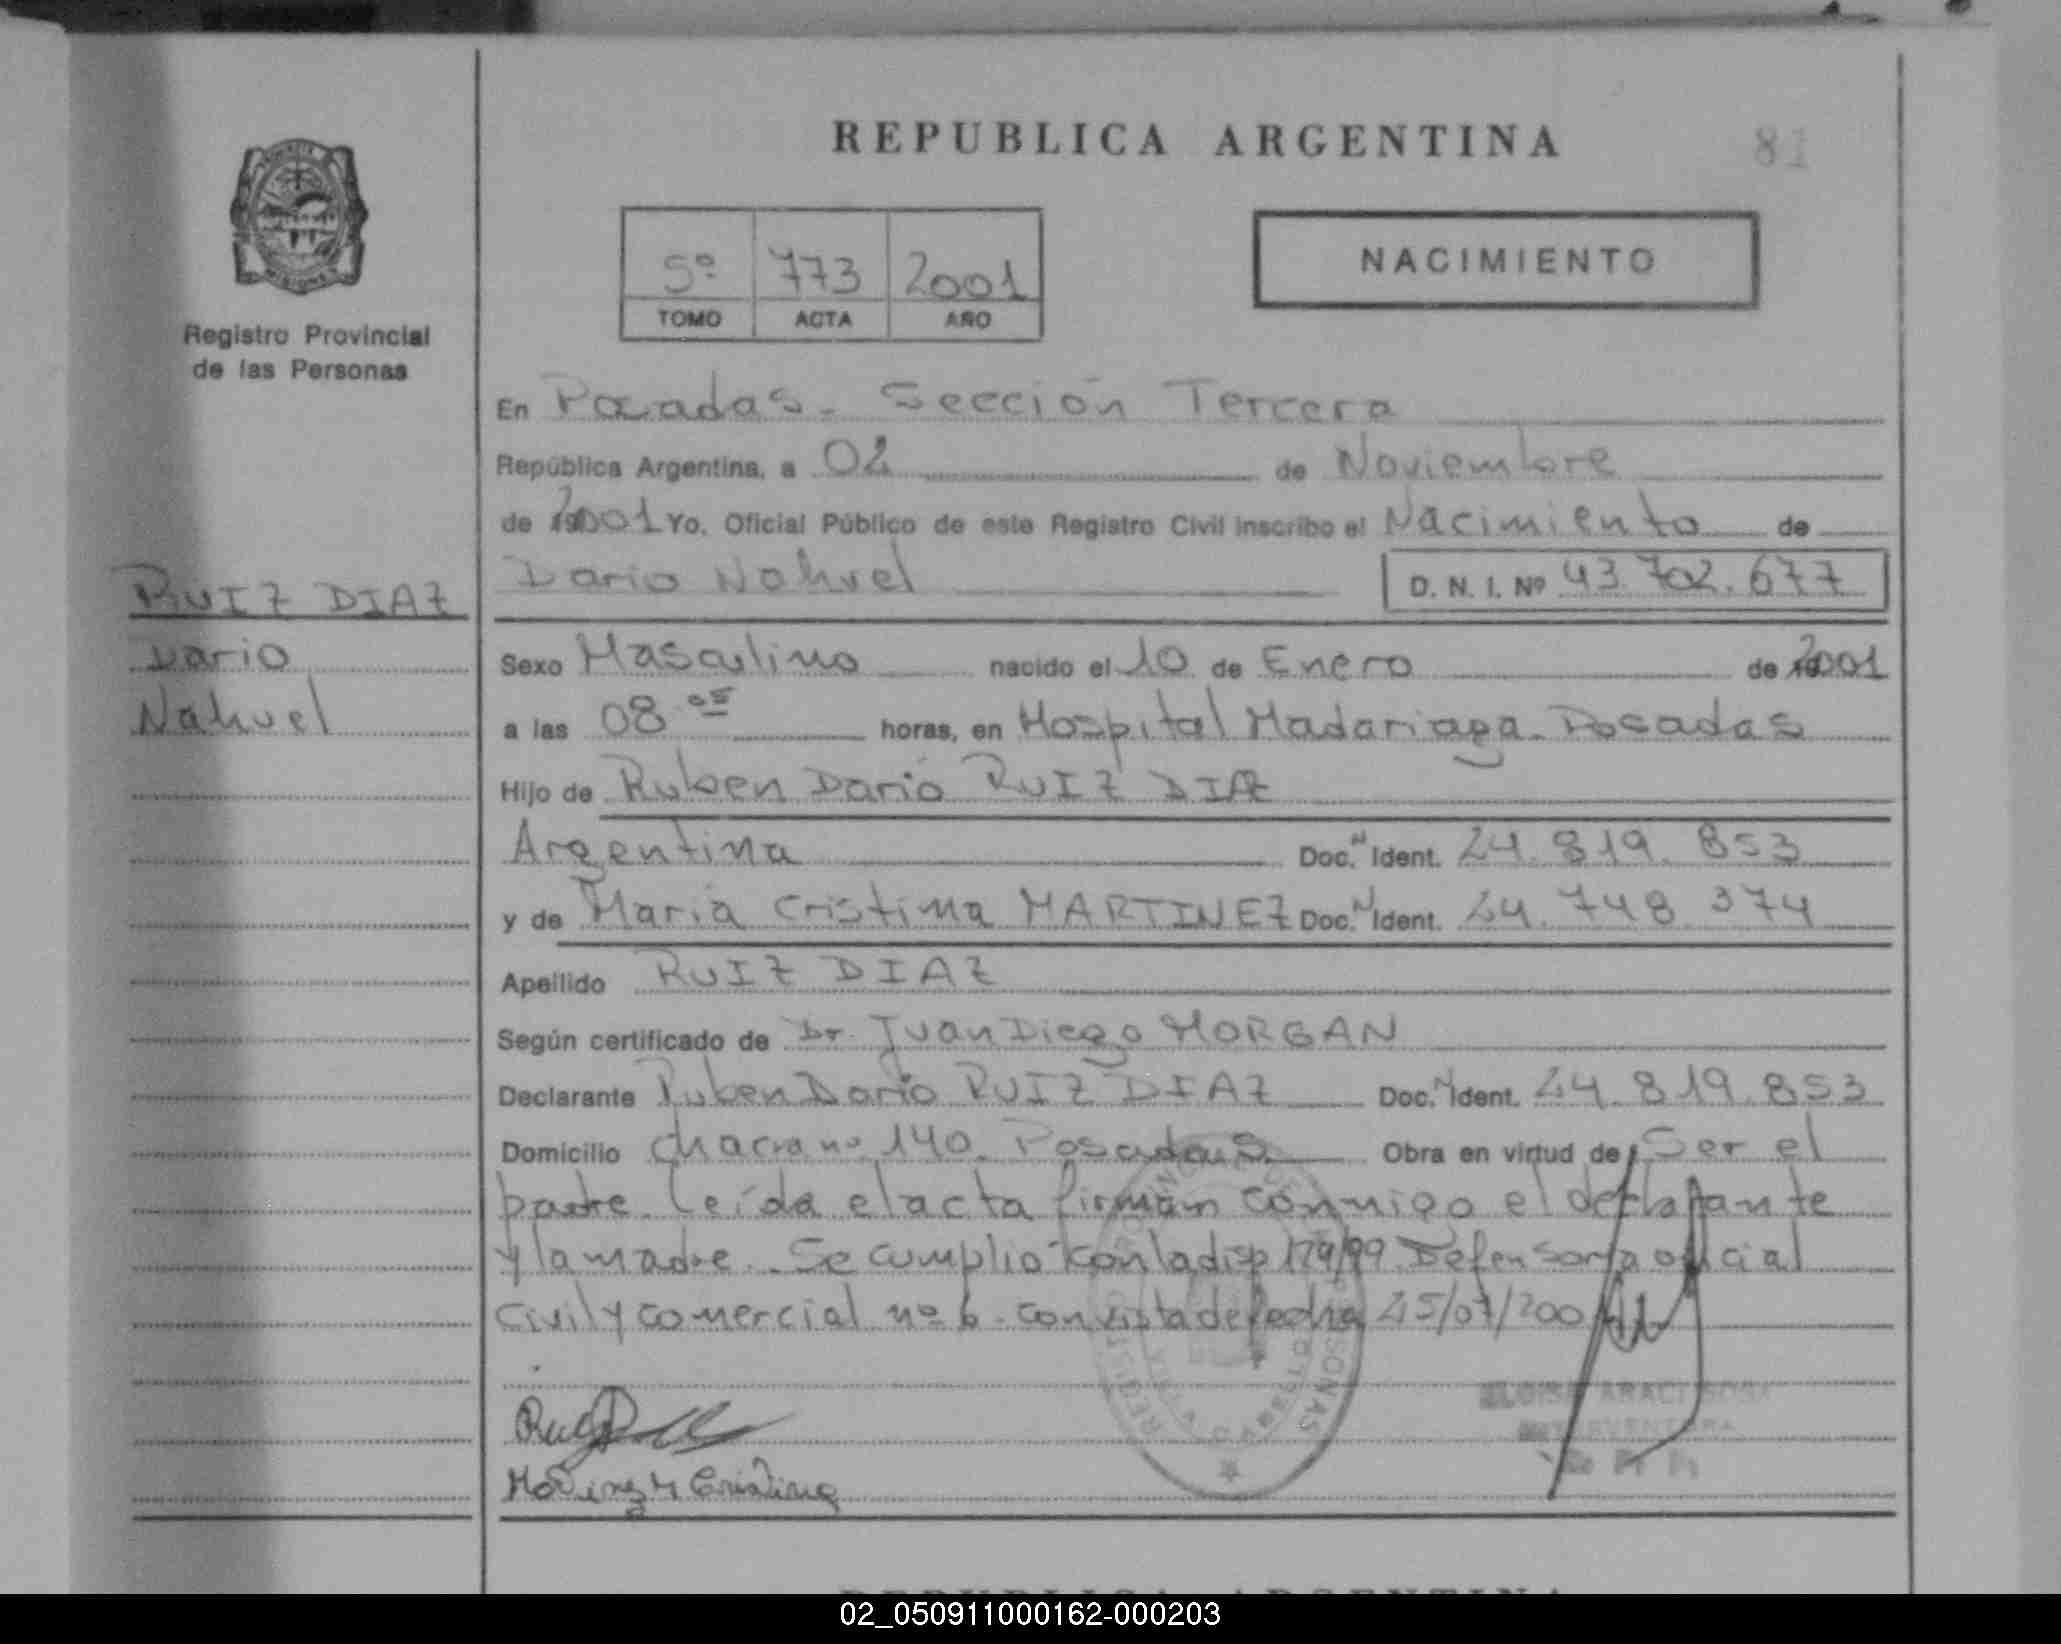 REPUBLICA ARGENTINA
81
5º 773 2001
TOMO ACTA AÑO
NACIMIENTO
Registro Provincial
de las Personas
En Posadas - Sección Tercera
República Argentina, a 02 de Noviembre
de 2001 Yo, Oficial Público de este Registro Civil inscribo el Nacimiento de
Dario Nahuel D. N. I. Nº 43.702.677
RUIZ DIAZ
Dario
Nahuel
Sexo Masculino nacido el 10 de Enero de 2001
a las 08 05 horas, en Hospital Madariaga - Posadas
Hijo de Ruben Dario RUIZ DIAZ
Argentina Doc. N Ident. 24.819.853
y de Maria Cristina MARTINEZ Doc. N Ident. 24.748.374
Apellido RUIZ DIAZ
Según certificado de Dr. Juan Diego MORGAN
Declarante Ruben Dario RUIZ DIAZ Doc. N Ident. 24.819.853
Domicilio chacra nº 140. Posadas Obra en virtud de Ser el
padre. Leída el acta firman conmigo el declarante
y la madre. Se cumplio con la disp 179/99 Defensoria oficial
Civil y comercial nº 6 - con vista de fecha 25/07/2001
Martinez M Cristina
REPUBLICA ARGENTINA
02_050911000162-000203